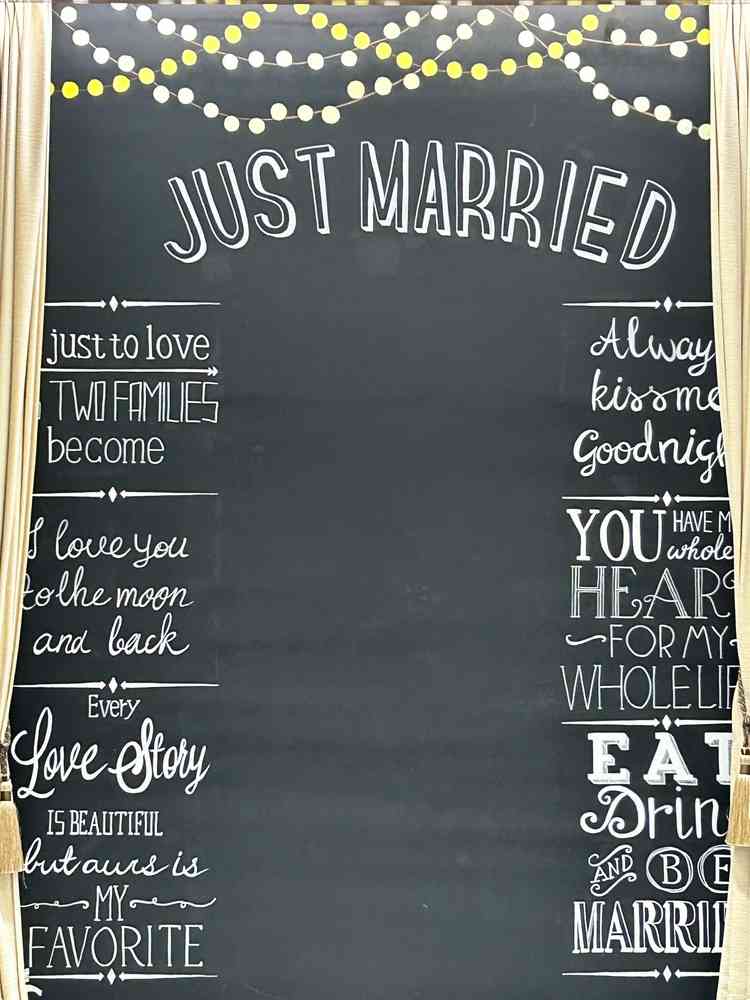 JUST MARRIED
just to love
TWO FAMILIES
become
I love you
to the moon
and back
Every
Love Story
IS BEAUTIFUL
but aurs is
MY
FAVORITE
Alway
kiss me
Goodnigh
YOU HAVE M
whole
HEAR
FOR MY
WHOLE LIF
EAT
Drin
AND BE
MARRIE